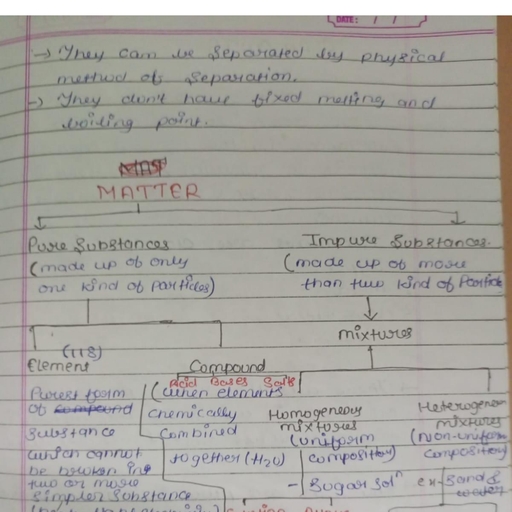 DATE: / /
→ They can be separated by physical
method of separation.
→ They don't have fixed melting and
boiling point.
MATTER
Pure Substances
(made up of only
one kind of particles)
Impure Substances.
(made up of more
than two kind of Particle
mixtures
(118)
Element
Purest form
of compound
substance
which cannot
be broken into
two or more
simpler substance
Compound
Acid Bases Salts
(when elements
chemically
combined
together (H₂O)
Homogeneous
mixtures
(uniform
composition)
- Sugar solⁿ
Heterogen
mixtures
(non-uniform
composition)
ex- Sand &
water